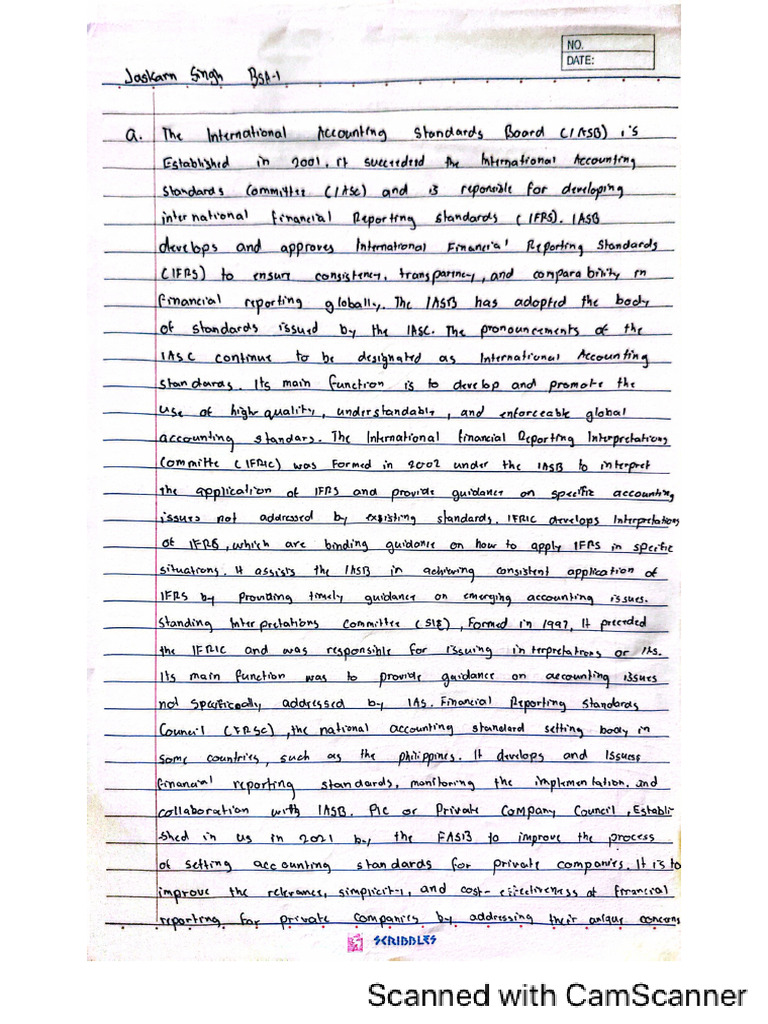 NO.
DATE:
Jaskarn Singh BSA-1
a. The International Accounting Standards Board (IASB) is
Established in 2001. It succeeded the International Accounting
Standards Committee (IASC) and is reponsible for developing
international Financial Reporting Standards (IFRS). IASB
develops and approves International Financial Reporting Standards
(IFRS) to ensure consistency, transparency, and comparability in
financial reporting globally. The IASB has adopted the body
of standards issued by the IASC. The pronouncements of the
IASC continue to be designated as International Accounting
Standards. Its main function is to develop and promote the
use of high quality, understandable, and enforceable global
accounting standars. The International Financial Reporting Interpretations
Committe (IFRIC) was formed in 2002 under the IASB to interpret
the application of IFRS and provide guidance on specific accounting
issues not addressed by existing standards. IFRIC develops Interpretations
of IFRS, which are binding guidance on how to apply IFRS in specific
situations. It assists the IASB in achieving consistent application of
IFRS by providing timely guidance on emerging accounting issues.
Standing Interpretations Committee (SIC), Formed in 1997, It preceded
the IFRIC and was responsible for issuing interpretations or IAs.
Its main function was to provide guidance on accounting issues
not specifically addressed by IAS. Financial Reporting Standards
Council (FRSC), the national accounting standard setting body in
some countries, such as the philippines. It develops and Issues
financial reporting standards, monitoring the implementation, and
collaboration with IASB. PIC or Private Company Council, Establi-
shed in US in 2021 by the FASB to improve the process
of setting accounting standards for private companies. It is to
improve the relevance, simplicity, and cost-effectiveness of financial
reporting for private companies by addressing their unique concerns
SCRIBBLES
Scanned with CamScanner